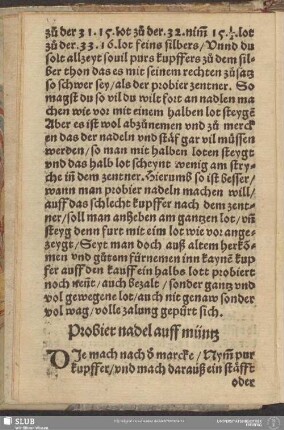 zů der 31. 15. lot zů der. 32. nim̃ 15 ½. lot
zů der. 33. 16. lot feins silbers / Vnnd du
solt allzeyt souil purs kupffers zů dem sil-
ber thon das es mit seinem rechten zůsatz
so schwer sey / als der probier zentner. So
magst du so vil du wilt fort an nadlen ma
chen wie vor mit einem halben lot steygẽ
Aber es ist wol abzůnemen vnd zů merck
en das der nadeln vnd stäf gar vil müssen
werden / so man mit halben loten steygt
vnd das halb lot scheynt wenig am stry-
che in̄ dem zentner. Hierumb so ist besser /
wann man probier nadeln machen will /
auff das schlecht kupffer nach dem zent-
ner / soll man anheben am gantzen lot / vñ
steyg denn furt mit eim lot wie vor ange-
zeygt / Seyt man doch auß altem herkõ-
men vnd gůtem fürnemen inn kaynẽ kup
fer auff den kauff ein halbs lott probiert
noch reüt / auch bezalt / sonder gantz vnd
vol gewegene lot / auch nit genaw sonder
vol wag / volle zalung gepürt sich.
Probier nadel auff müntz
DIe mach nach d̕ marcke / Nym̃ pur
kupffer / vnd mach darauß ein stäfft
oder
SLUB